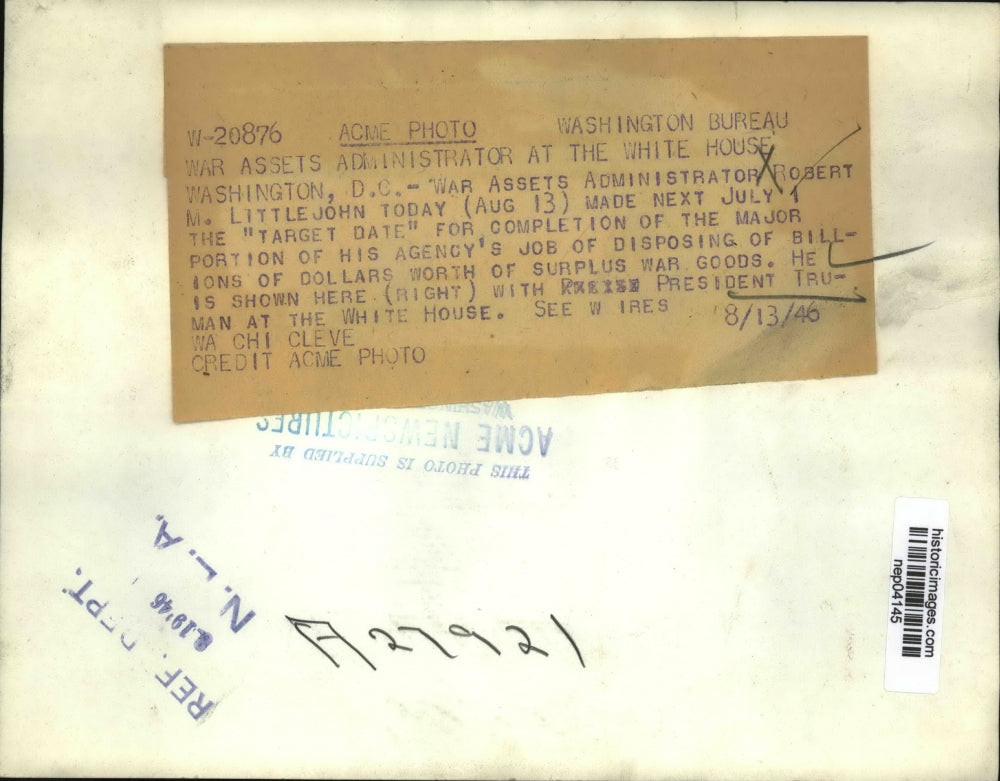 W-20876 ACME PHOTO WASHINGTON BUREAU
WAR ASSETS ADMINISTRATOR AT THE WHITE HOUSE
WASHINGTON, D.C.- WAR ASSETS ADMINISTRATOR ROBERT
M. LITTLEJOHN TODAY (AUG 13) MADE NEXT JULY 1
THE "TARGET DATE" FOR COMPLETION OF THE MAJOR
PORTION OF HIS AGENCY'S JOB OF DISPOSING OF BILL-
IONS OF DOLLARS WORTH OF SURPLUS WAR GOODS. HE
IS SHOWN HERE (RIGHT) WITH PRESIDENT TRU-
MAN AT THE WHITE HOUSE. SEE W IRES 8/13/46
WA CHI CLEVE
CREDIT ACME PHOTO
THIS PHOTO IS SUPPLIED BY
ACME NEWSPICTURES
REF. DEPT.
N. L. A.
A27921
historicimages.com
nep04145